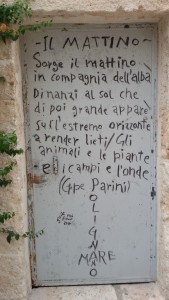 -IL MATTINO-
Sorge il mattino
in compagnia dell'alba
Dinanzi al sol che
di poi grande appare
sull'estremo orizzonte
a render lieti/Gli
animali e le piante
e i campi e l'onde
(Gpe Parini)
POLIGNANO
MARE